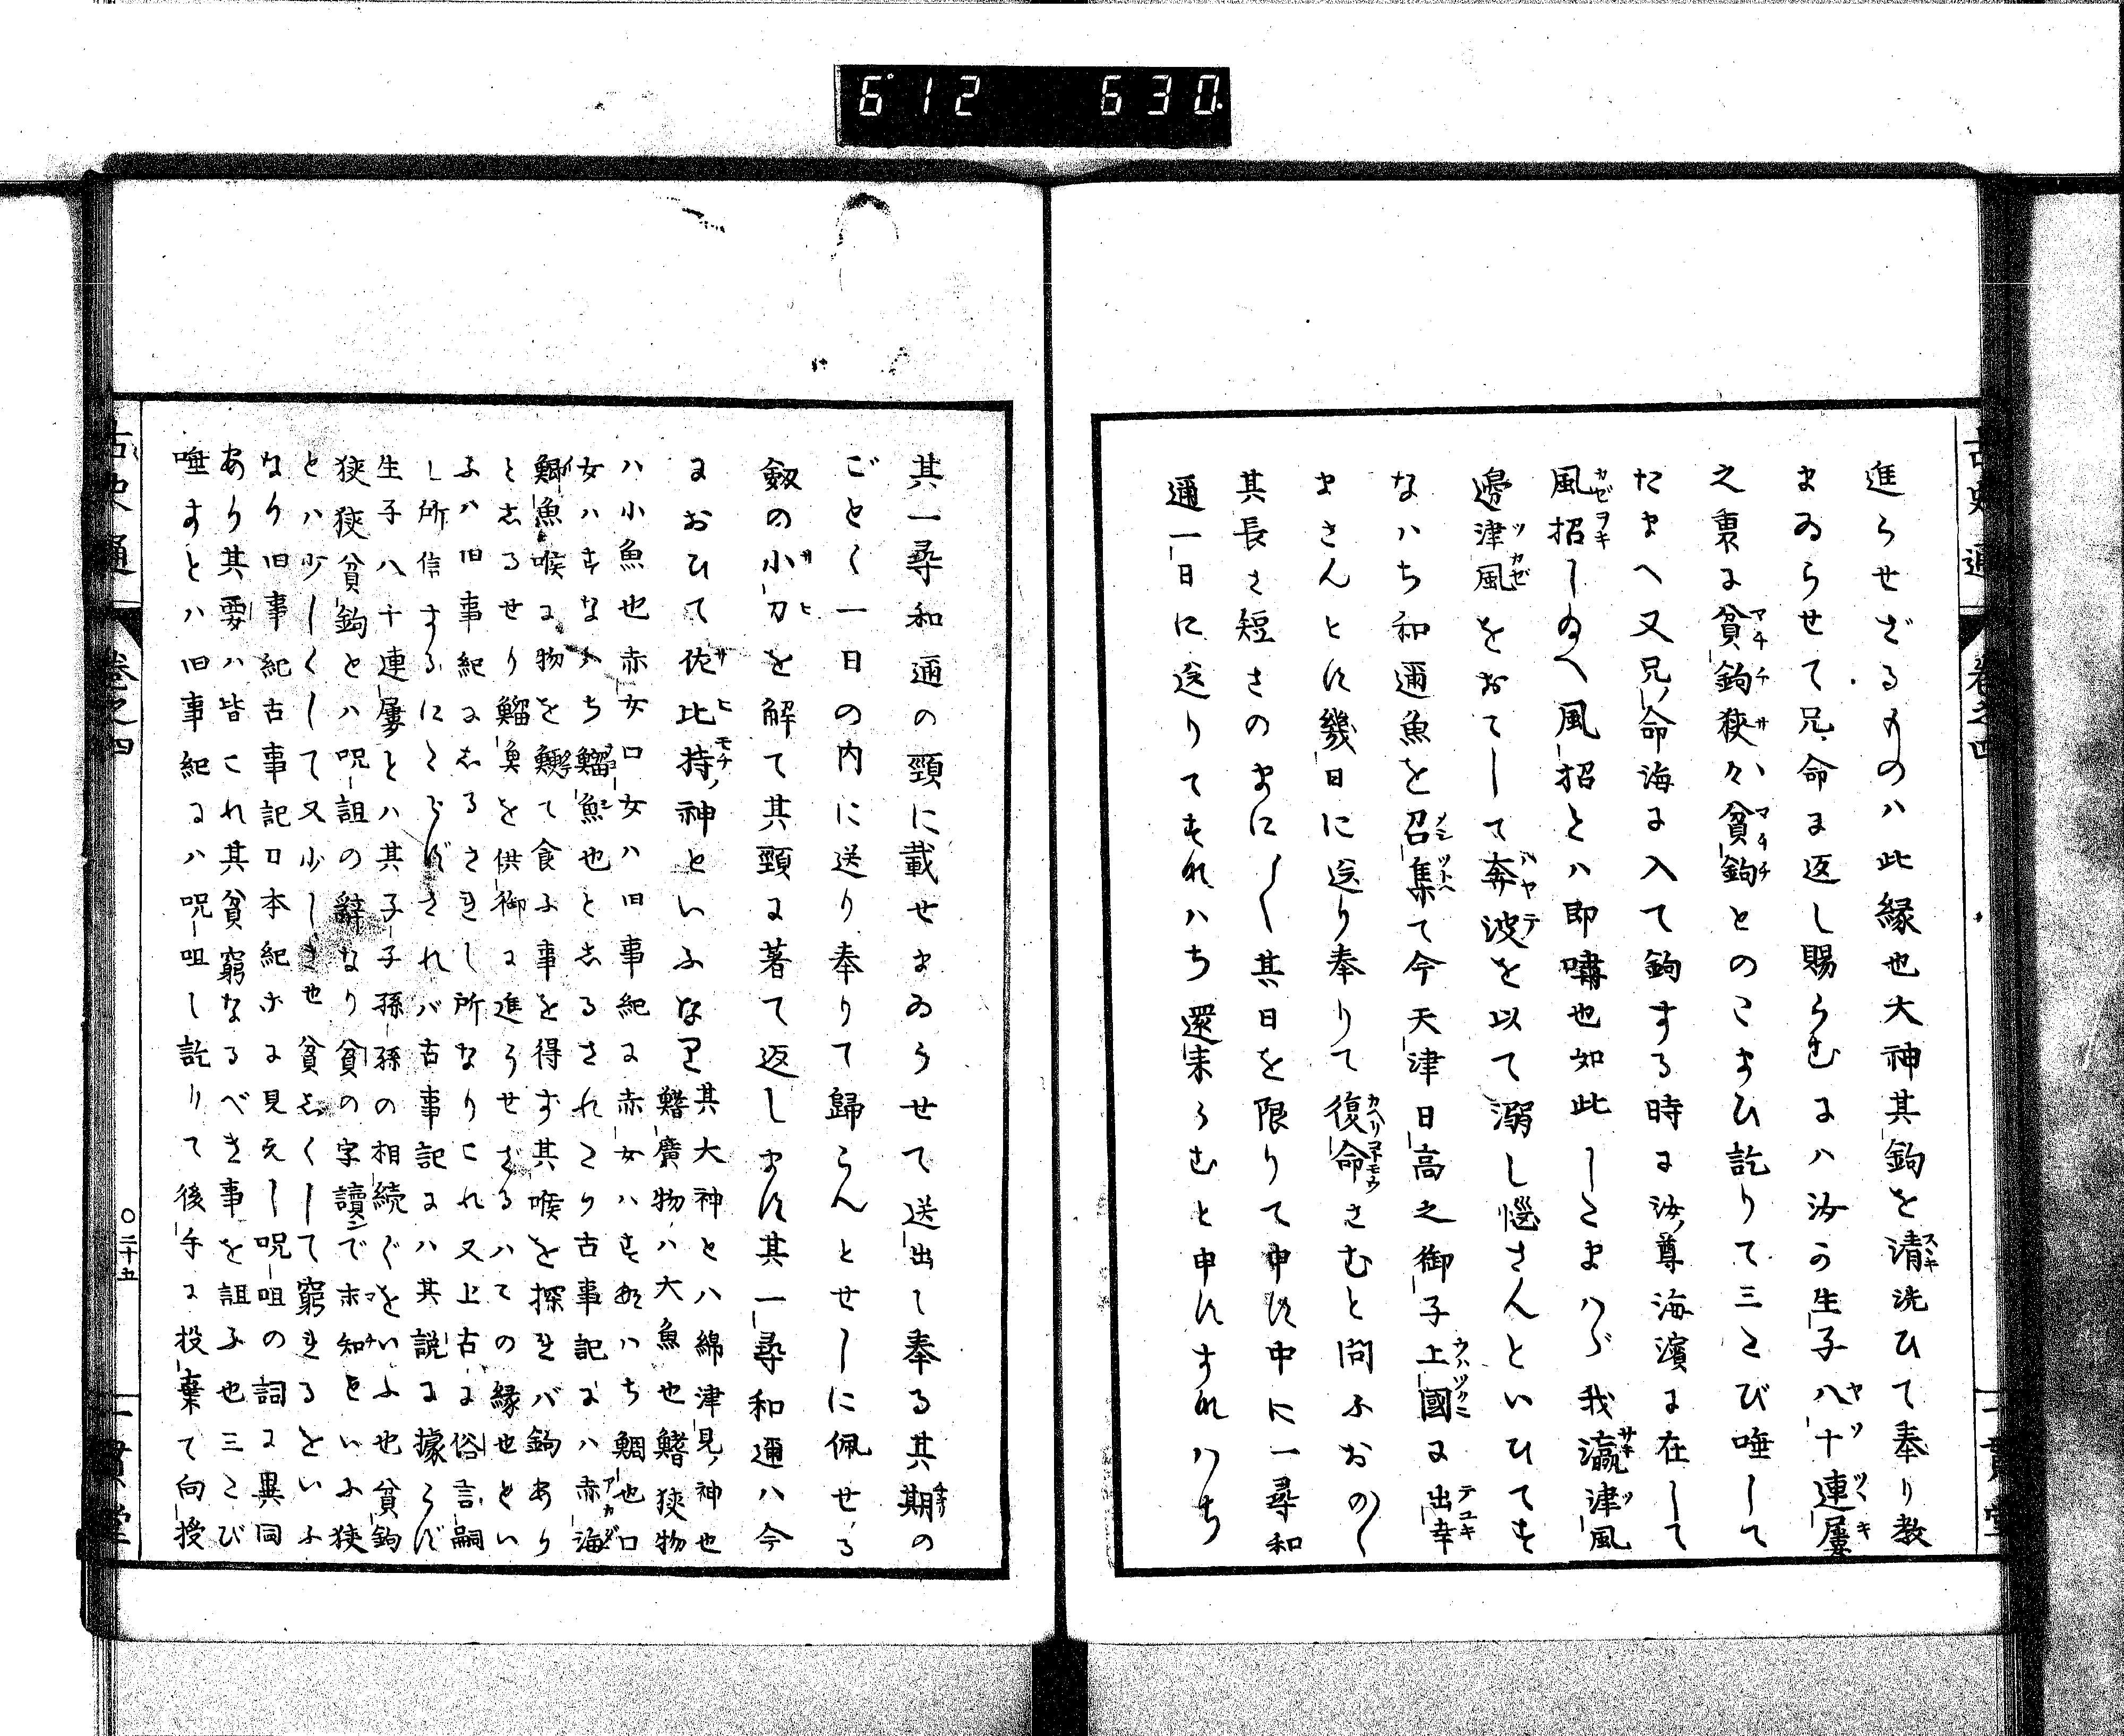 6 12 630.
古史通 卷之四 一貫堂
進らせざるものハ此縁也大神其鉤を清洗ひて奉り教
まゐらせて兄命ま返し賜らむにハ汝の生子八十連屬
之裏に貧鉤狹々貧鉤とのこまひ訖りて三たび唾して
たまへ又兄ノ命海に入て鉤する時に汝ノ尊海濱に在して
風招しゐへ風招とハ即嘯也如此したまハヾ我瀛津風
邊津風をおてして奔波を以て溺し惱さんといひてす
なハち和邇魚を召集て今天津日高之御子上國に出幸
まさんとす幾日に送り奉りて復命さむと問ふおの〱
其長さ短さのまに〱其日を限りて申す中に一尋和
邇一日に送りてすれハち還来らむと申すすれハち
其一尋和邇の頸に載せまゐらせて送出して奉る其期の
ごとく一日の内に送り奉りて歸らんとせしに佩せる
劔の小刀を解て其頸に著て返します其一尋和邇ハ今
におひて佐比持ノ神といふなり 其大神とハ綿津見ノ神也
鰭廣物ハ大魚也鰭狹物
ハ小魚也赤女口女ハ旧事紀に赤女ハすなハち鯛也口
女ハすなハち鯔魚也としるされたり古事記にハ赤海
鯽魚喉に物を鯁て食ふ事を得ず其喉を探れバ鉤あり
としるせり鯔魚を供御に進らせざるハての縁也とい
ふハ旧事紀にしるされし所なりこれ又上古に俗言嗣
し所信するにたらずされバ古事記にハ其説に據らず
生子八十連屬とハ其子子孫孫の相続ぐをいふ也貧鉤
狹狹貧鉤とハ呪詛の辭なり貧の字讀で末知といふ狹
とハ少しくして又少しき也貧しくして窮きるといふ
なり旧事紀古事記日本紀等に見えし呪咀の詞に異同
あり其要ハ皆これ其貧窮なるべき事を詛ふ也三たび
唾すとハ旧事紀にハ呪咀し訖りて後手に投棄て向授
古史通 卷之四 〇二十五 一貫堂